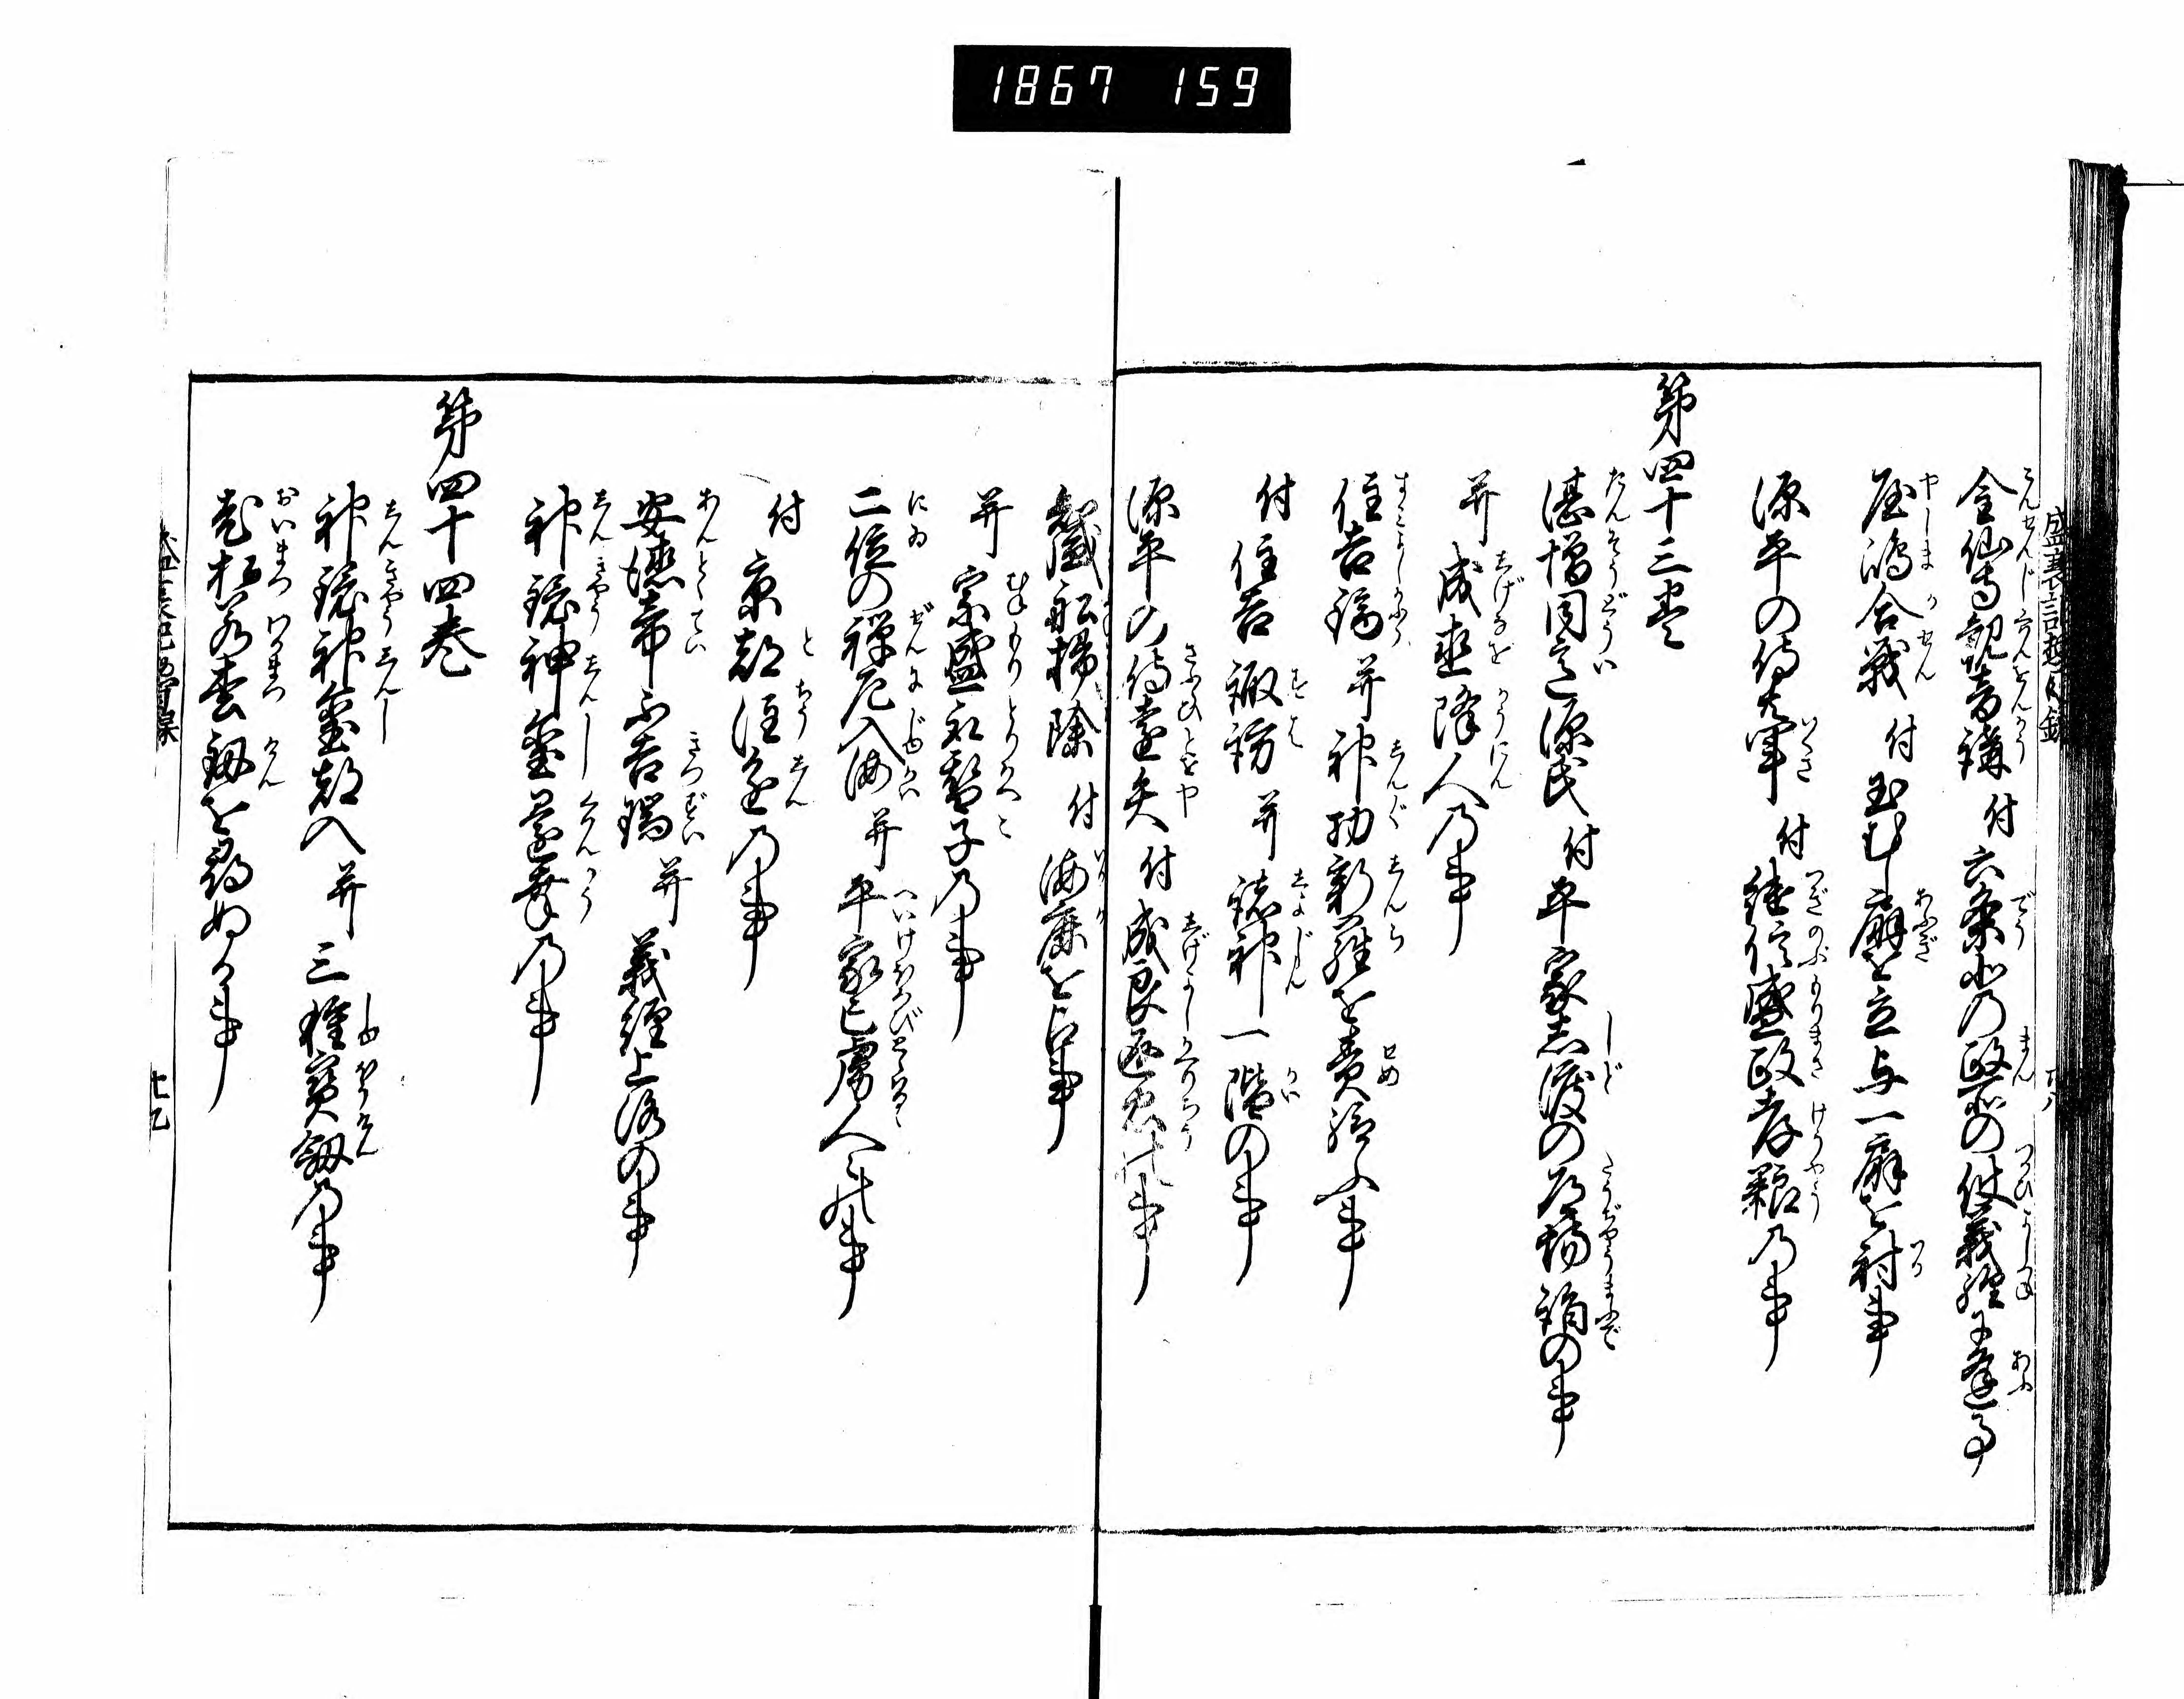 1867 159
金仙寺観音講 付 六条北の政所の使義経に逢事
屋嶋合戦 付 玉むし扇を立与一扇を射事
源平の侍共軍 付 継信盛政孝養の事
第四十三巻
湛増同意源氏 付 平家志渡の道場詣の事
并 成直降人の事
住吉鏑 并 神功新羅を責給ふ事
付 住吉諏訪 并 諸神一階の事
源平の侍遠矢 付 成良返忠の事
知盛船掃除 付 海鹿を占事
并 宗盛取替子の事
二位の禅尼入海 并 平家亡虜人之事
付 京都注進の事
安徳帝不吉瑞 并 義経上洛の事
神鏡神璽還幸の事
第四十四巻
神鏡神璽都入 并 三種宝剱の事
老松若松剱を尋ぬる事